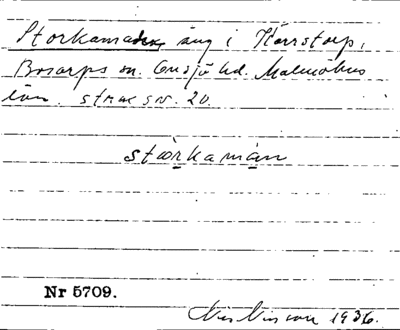 Storkamaden äng i Härrstorp,
Bosarps sn. Onsjö hd. Malmöhus
län. strax sv. 20.
stωrkamàn
Nr 5709.
Nils Nilsson 1936.